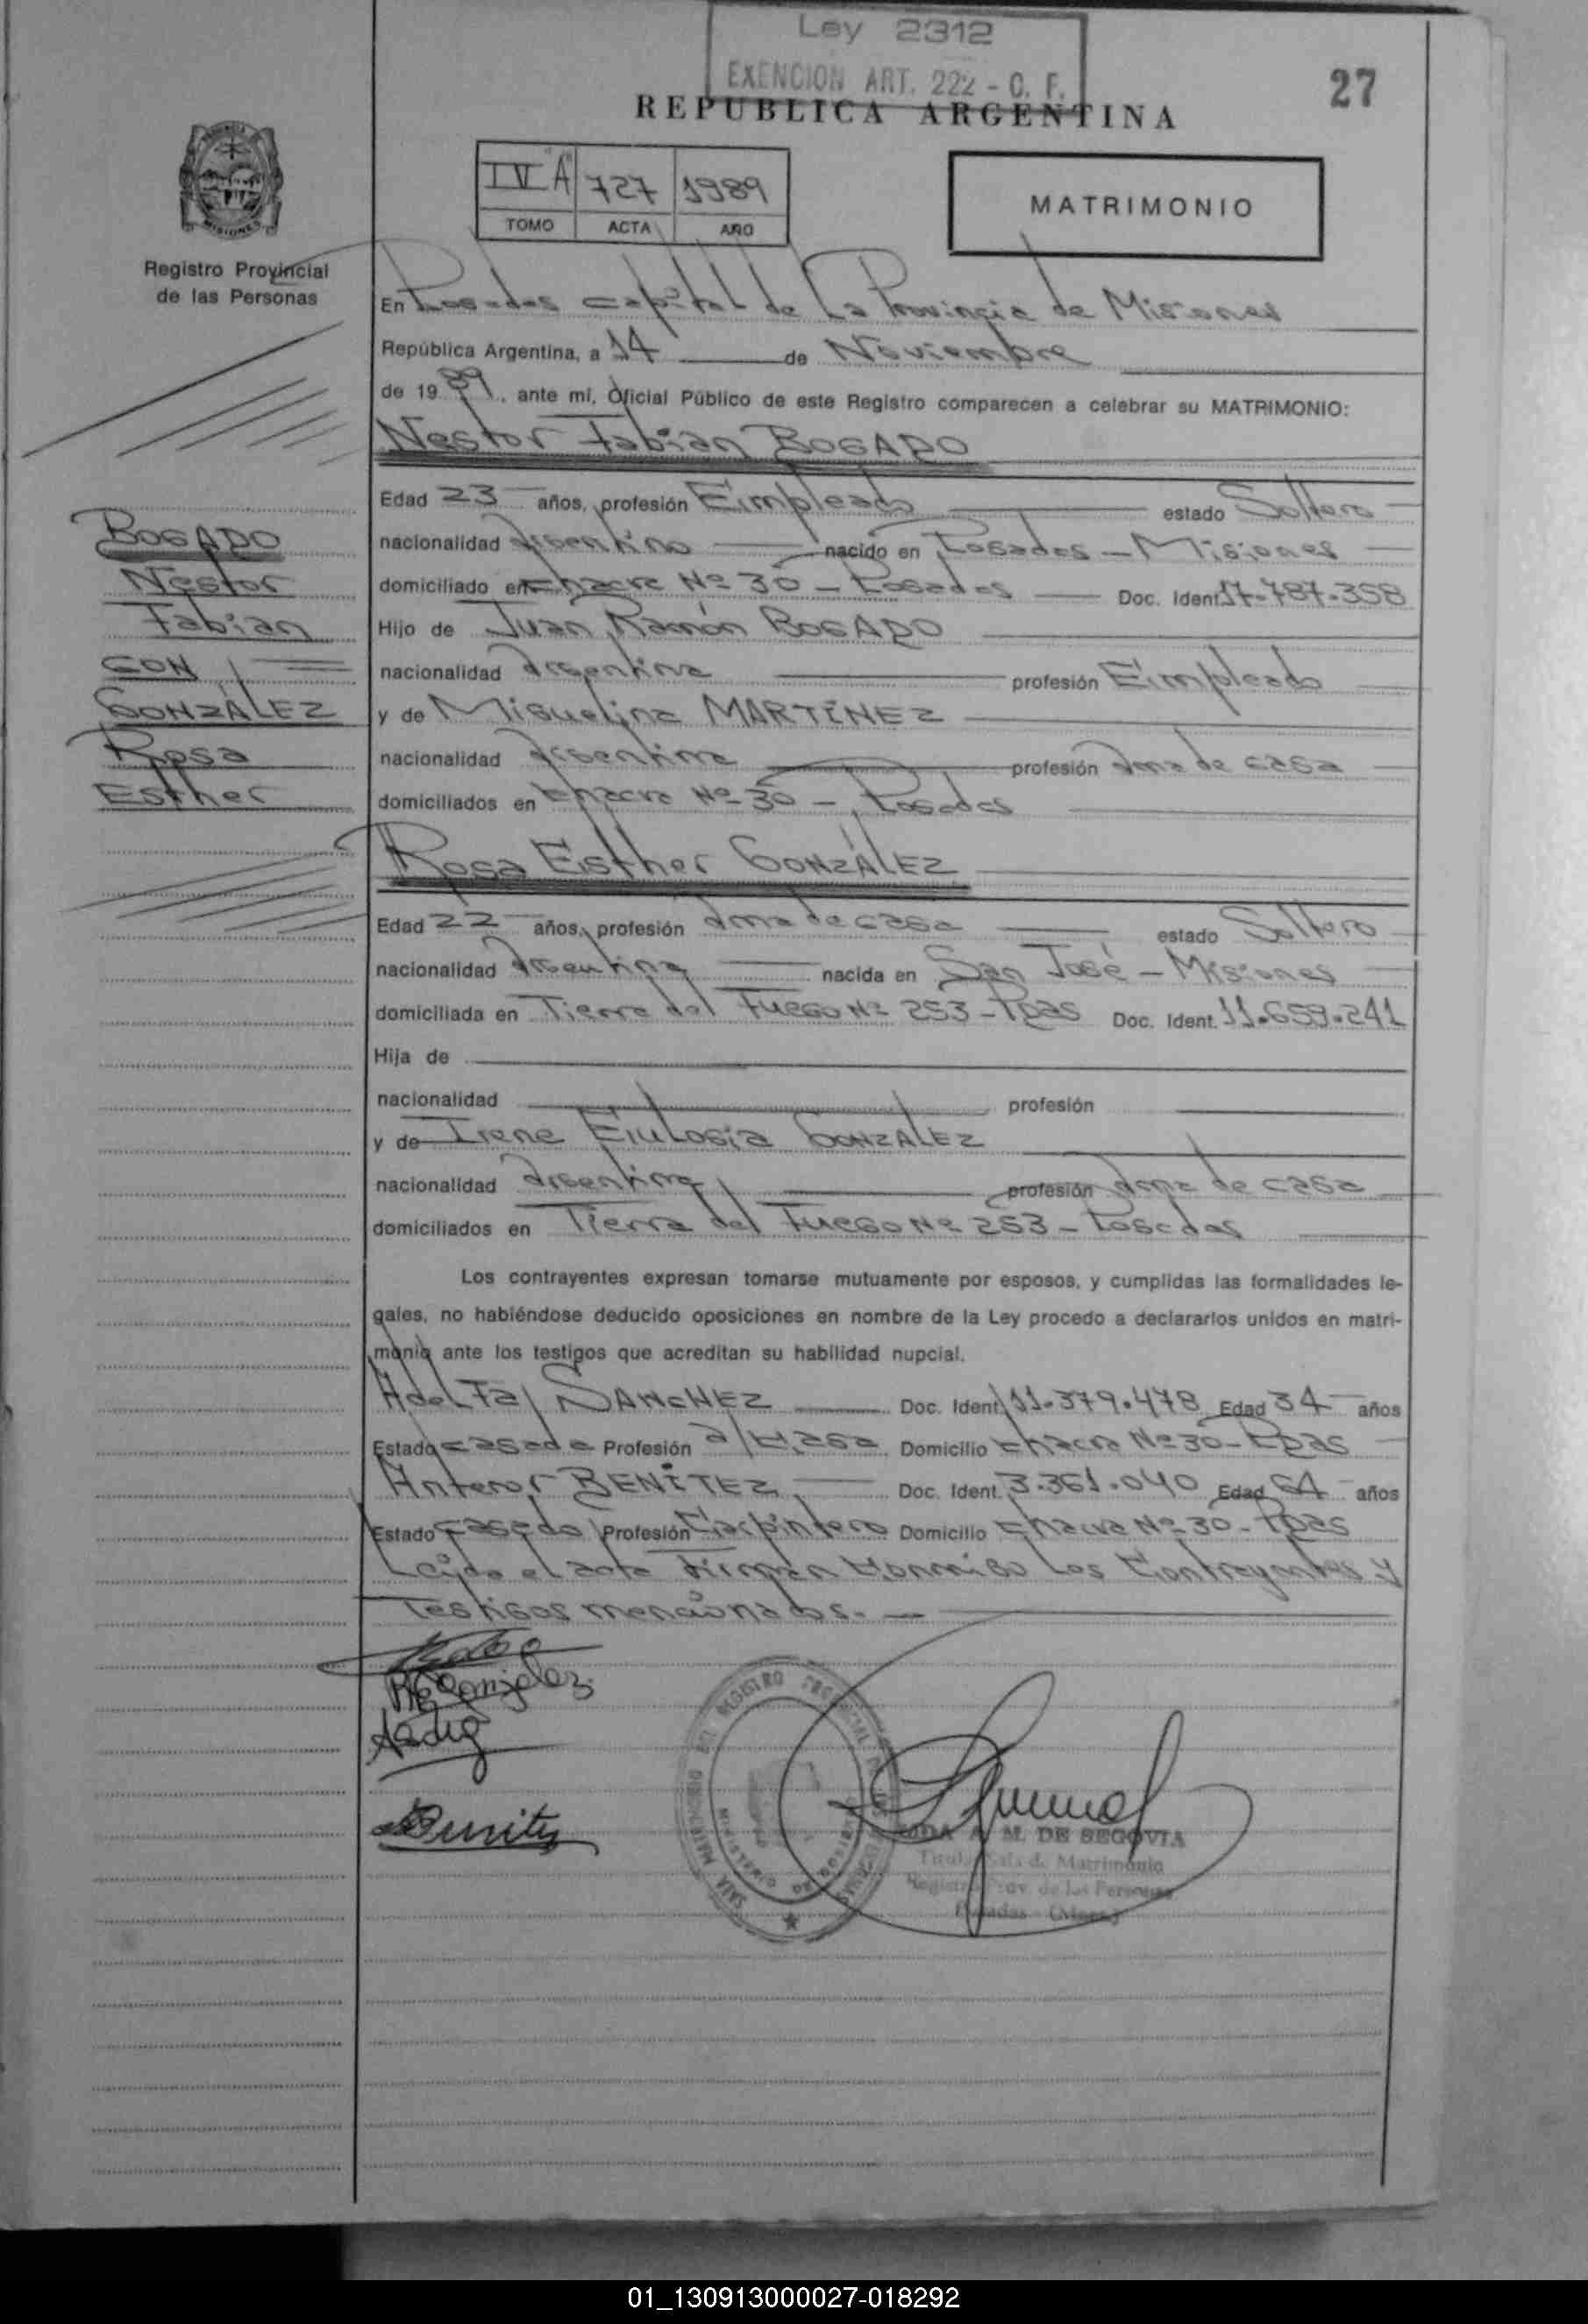 Ley 2312
EXENCION ART. 222 - C. F.
27
REPUBLICA ARGENTINA
IV "A" 727 1989
TOMO ACTA AÑO
MATRIMONIO
MISIONES
Registro Provincial
de las Personas
En Posadas capital de La Provincia de Misiones
República Argentina, a 14 de Noviembre
de 1989, ante mí, Oficial Público de este Registro comparecen a celebrar su MATRIMONIO:
Nestor Fabián BOGADO
Edad 23 años, profesión Empleado estado Soltero
nacionalidad Argentino nacido en Posadas - Misiones
domiciliado en Chacra Nº 30 - Posadas Doc. Ident. 17.787.358
Hijo de Juan Ramón BOGADO
nacionalidad Argentina profesión Empleado
y de Miguelina MARTÍNEZ
nacionalidad Argentina profesión Ama de casa
domiciliados en Chacra Nº 30 - Posadas
BOGADO
Nestor
Fabian
CON
GONZÁLEZ
Rosa
Esther
Rosa Esther GONZÁLEZ
Edad 22 años, profesión Ama de casa estado Soltero
nacionalidad Argentina nacida en San José - Misiones
domiciliada en Tierra del Fuego Nº 253 - Pdas Doc. Ident. 11.659.241
Hija de
nacionalidad profesión
y de Irene Eulogia GONZÁLEZ
nacionalidad Argentina profesión Ama de casa
domiciliados en Tierra del Fuego Nº 253 - Posadas
Los contrayentes expresan tomarse mutuamente por esposos, y cumplidas las formalidades le-
gales, no habiéndose deducido oposiciones en nombre de la Ley procedo a declararlos unidos en matri-
monio ante los testigos que acreditan su habilidad nupcial.
Adelfa SANCHEZ Doc. Ident. 11.379.478 Edad 34 años
Estado casada Profesión a/casa Domicilio Chacra Nº 30 - Pdas
Antenor BENÍTEZ Doc. Ident. 3.361.040 Edad 64 años
Estado casado Profesión Carpintero Domicilio Chacra Nº 30 - Pdas
Leída el acta Firman Conmigo Los Contrayentes y
Testigos mencionados.
REGonzalez
Benitez
A. M. DE SEGOVIA
Titular Sala de Matrimonio
Registro Prov. de las Personas
Posadas (Mnes.)
01_130913000027-018292